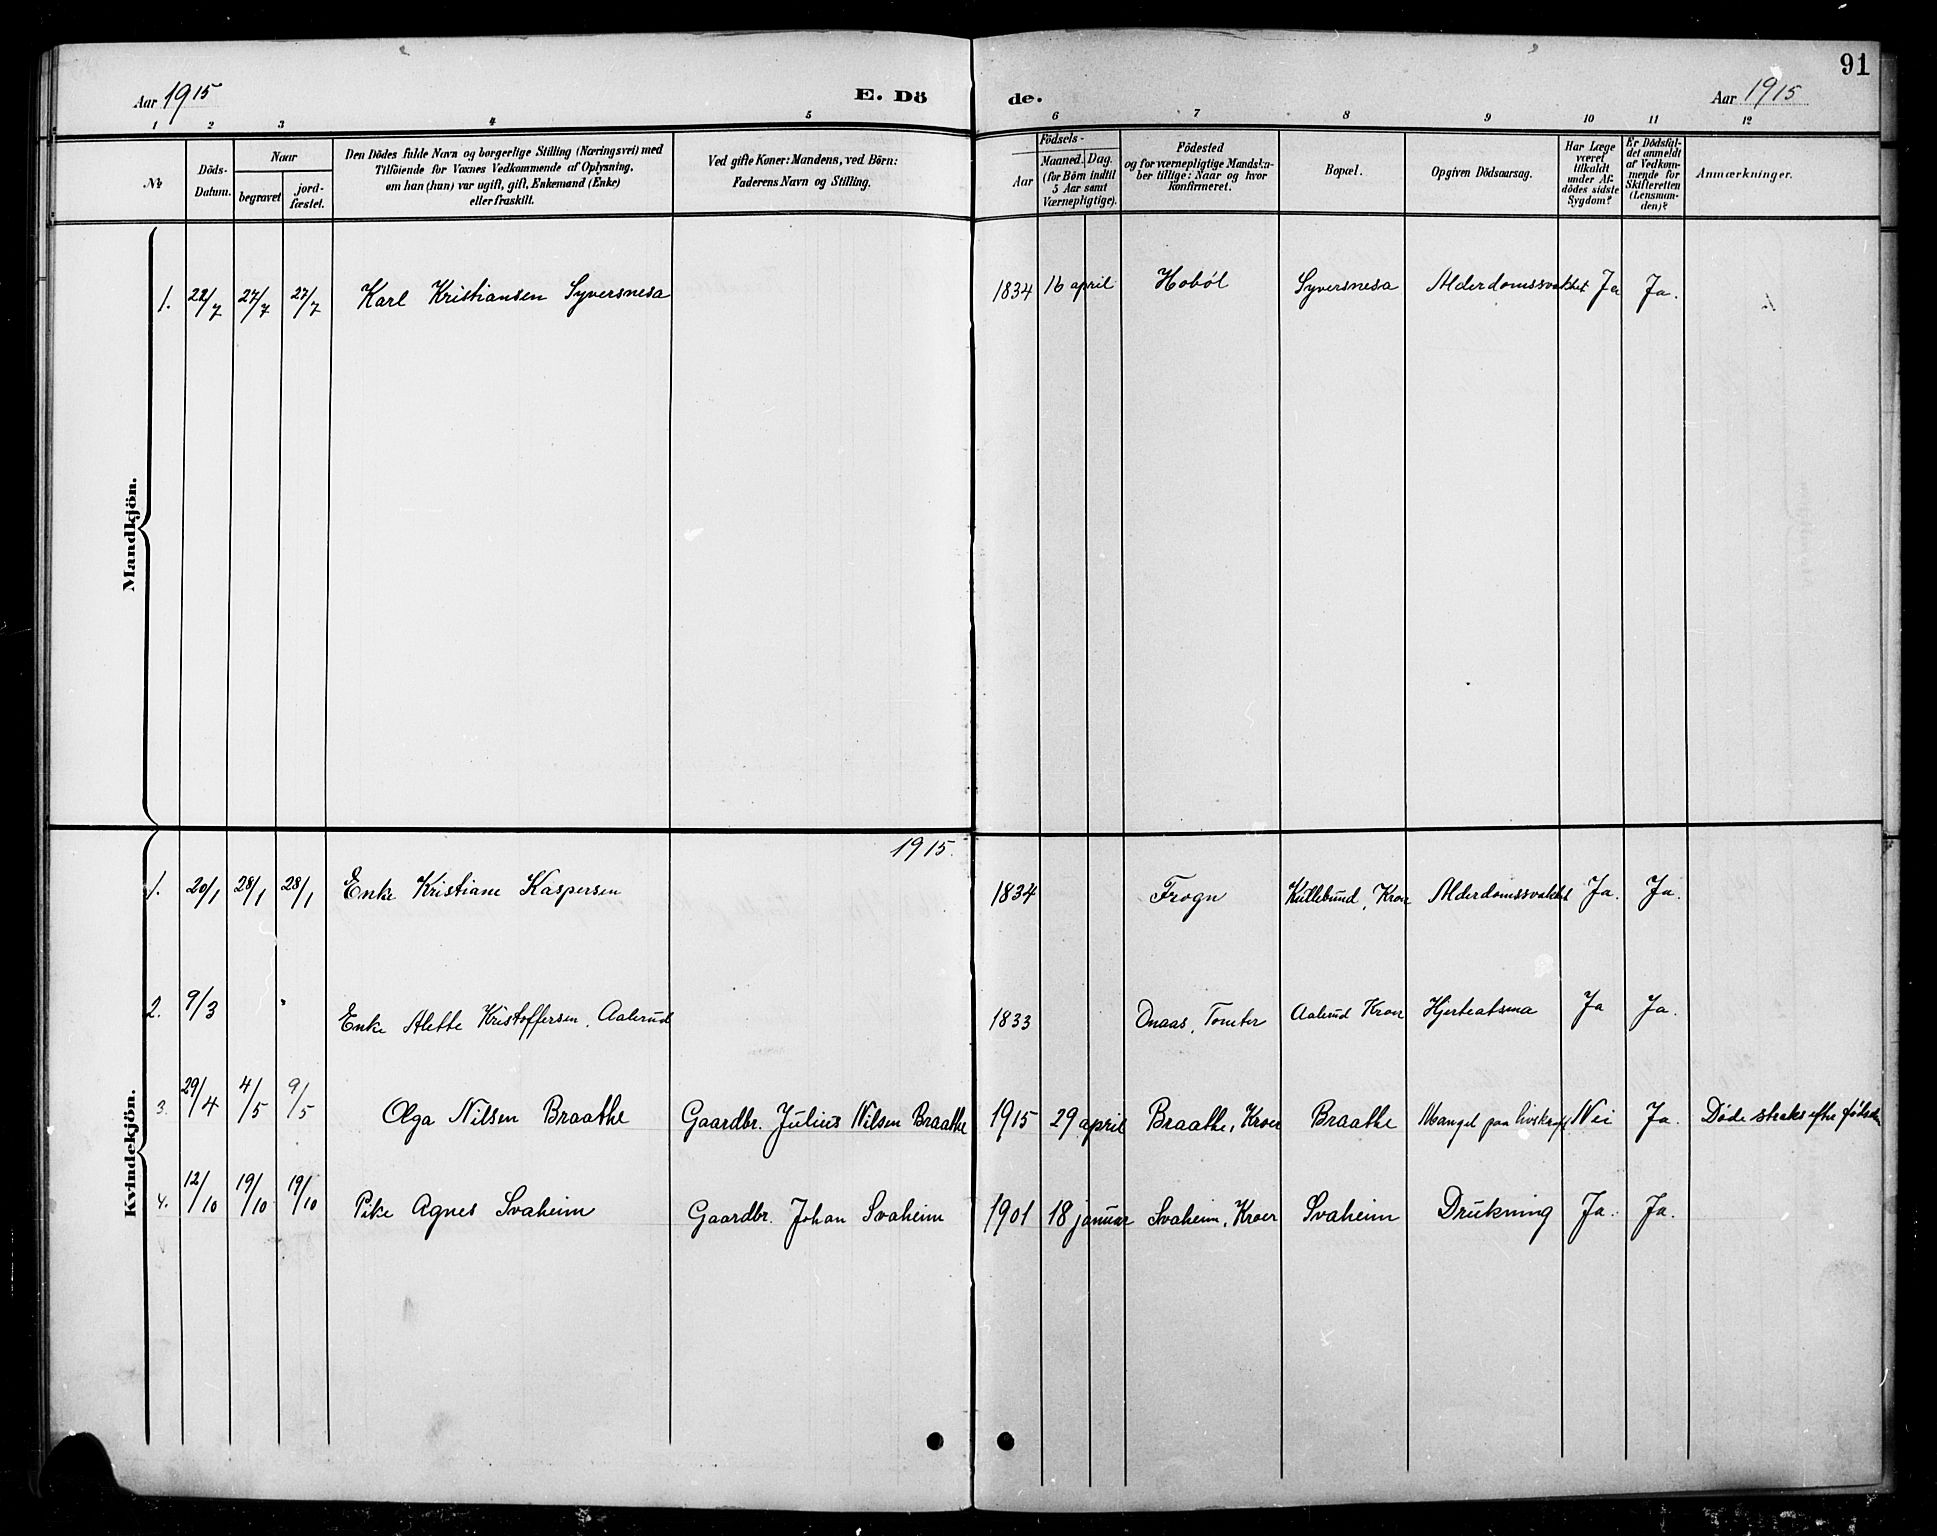 91
Aar 1915
E. Dö
de.
Aar 1915
1 2 3 4 5 6 7 8 9 10 11 12
№
Döds-
Datum.
Naar
begravet
jord-
fæstet.
Den Dödes fulde Navn og borgerlige Stilling (Næringsvei) med
Tilföiende for Voxnes Vedkommende af Oplysning,
om han (hun) var ugift, gift, Enkemand (Enke)
eller fraskilt.
Ved gifte Koner: Mandens, ved Börn:
Faderens Navn og Stilling.
Födsels-
Aar
Maaned. Dag.
(for Börn indtil
5 Aar samt
Værnepligtige).
Födested
og for værnepligtige Mandska-
ber tillige: Naar og hvor
konfirmeret.
Bopæl.
Opgiven Dödsaarsag.
Har Læge
været
tilkaldt
under Af-
dödes sidste
Sygdom?
Er Dödsfal-
det anmeldt
af Vedkom-
mende for
Skifteretten
(Lensman-
den)?
Anmærkninger.
Mandkjön.
1. 22/7 27/7 27/7 Karl Kristiansen Syversnesa 1834 16 april Hobøl Syversnesa Alderdomssvakhet Ja Ja.
1915.
Kvindekjön.
1. 20/1 28/1 28/1 Enke Kristiane Kaspersen 1834 Frogn Kullebund, Kroer Alderdomssvakhet Ja. Ja.
2. 9/3 Enke Alette Kristoffersen, Aalerud 1833 Tomter Aalerud Kroer Ja Ja.
3. 29/4 4/5 9/5 Olga Nilsen Braathe Gaardbr. Julius Nilsen Braathe 1915 29 april Braathe, Kroer Braathe Mangel paa livskraft Nei Ja. Døde straks efter fødselen
4. 12/10 19/10 19/10 Pike Agnes Svaheim Gaardbr. Johan Svaheim 1901 18 januar Svaheim, Kroer Svaheim Drukning Ja. Ja.